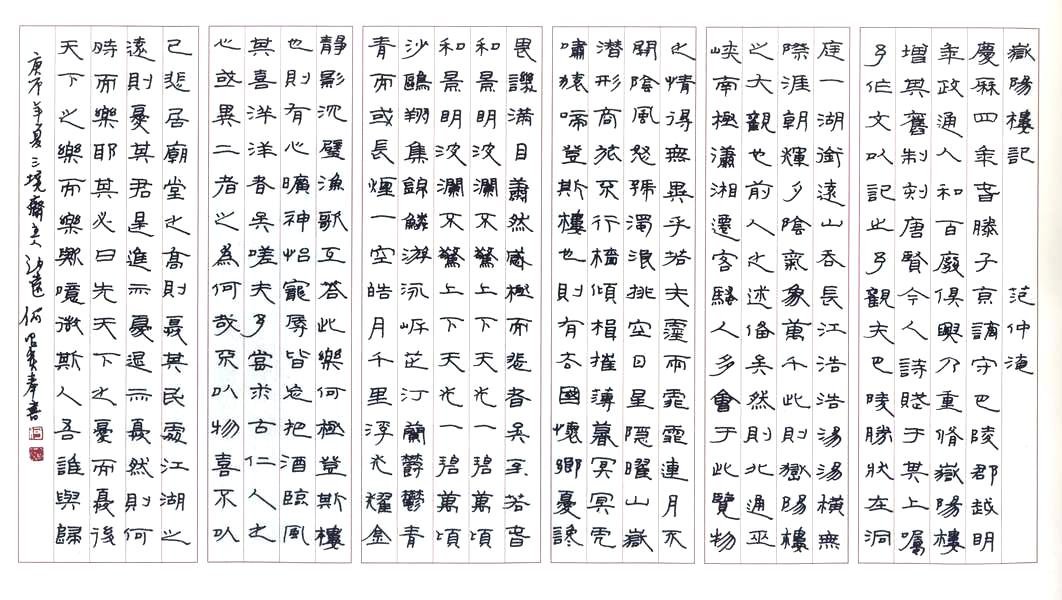 嶽陽樓記 范仲淹
慶厤四年春滕子京謫守巴陵郡越明
年政通人和百廢俱興乃重脩嶽陽樓
增其舊制刻唐賢今人詩賦于其上囑
予作文以記之予觀夫巴陵勝狀在洞
庭一湖銜遠山吞長江浩浩湯湯橫無
際涯朝輝夕陰氣象萬千此則嶽陽樓
之大觀也前人之述備矣然則北通巫
峽南極瀟湘遷客騷人多會于此覽物
之情得無異乎若夫霪雨霏霏連月不
開陰風怒號濁浪排空日星隱曜山嶽
潛形商旅不行檣傾楫摧薄暮冥冥虎
嘯猿啼登斯樓也則有去國懷鄉憂讒
畏譏滿目蕭然感極而悲者矣至若春
和景明波瀾不驚上下天光一碧萬頃
和景明波瀾不驚上下天光一碧萬頃
沙鷗翔集錦鱗游泳岸芷汀蘭鬱鬱青
青而或長煙一空皓月千里浮光耀金
靜影沉璧漁歌互答此樂何極登斯樓
也則有心曠神怡寵辱皆忘把酒臨風
其喜洋洋者矣嗟夫予嘗求古仁人之
心或異二者之為何哉不以物喜不以
己悲居廟堂之高則憂其民處江湖之
遠則憂其君是進亦憂退亦憂然則何
時而樂耶其必曰先天下之憂而憂後
天下之樂而樂歟噫微斯人吾誰與歸
庚子年夏三境齋主 遠 何 奉書